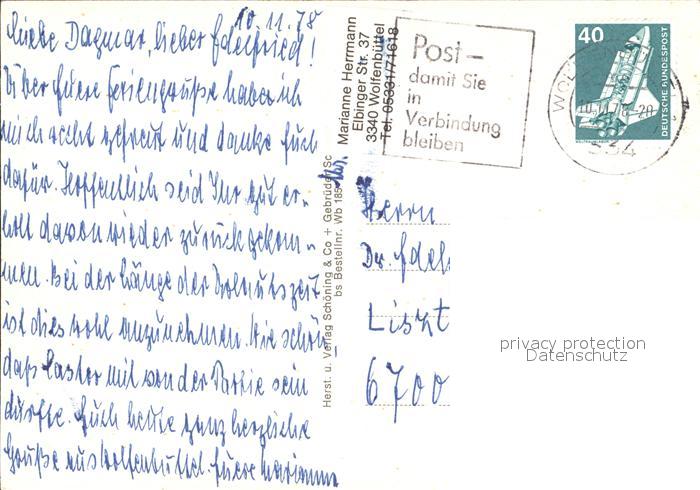 10.11.78
Liebe Dagmar, lieber Edelfried!
Über Eure Feriengrüße habe ich
mich recht gefreut und danke Euch
dafür. Hoffentlich seid Ihr gut er-
holt davon wieder zurückgekom-
men. Bei der Länge der Urlaubszeit
ist dies wohl anzunehmen. Wie schön
daß Caster mit von der Partie sein
durfte. Euch heute ganz herzliche
Grüße aus Wolfenbüttel. Eure Marianne
Marianne Herrmann
Elbinger Str. 37
3340 Wolfenbüttel
Tel. 05331/71618
Herst. u. Verlag Schöning & Co + Gebrüder Sc
bs Bestellnr. Wb 185
Post –
damit Sie
in
Verbindung
bleiben
40
DEUTSCHE BUNDESPOST
WELTRAUMLABOR
10.11.78-20
334
Herrn
Dr. Edel
Liszt
6700
privacy protection
Datenschutz